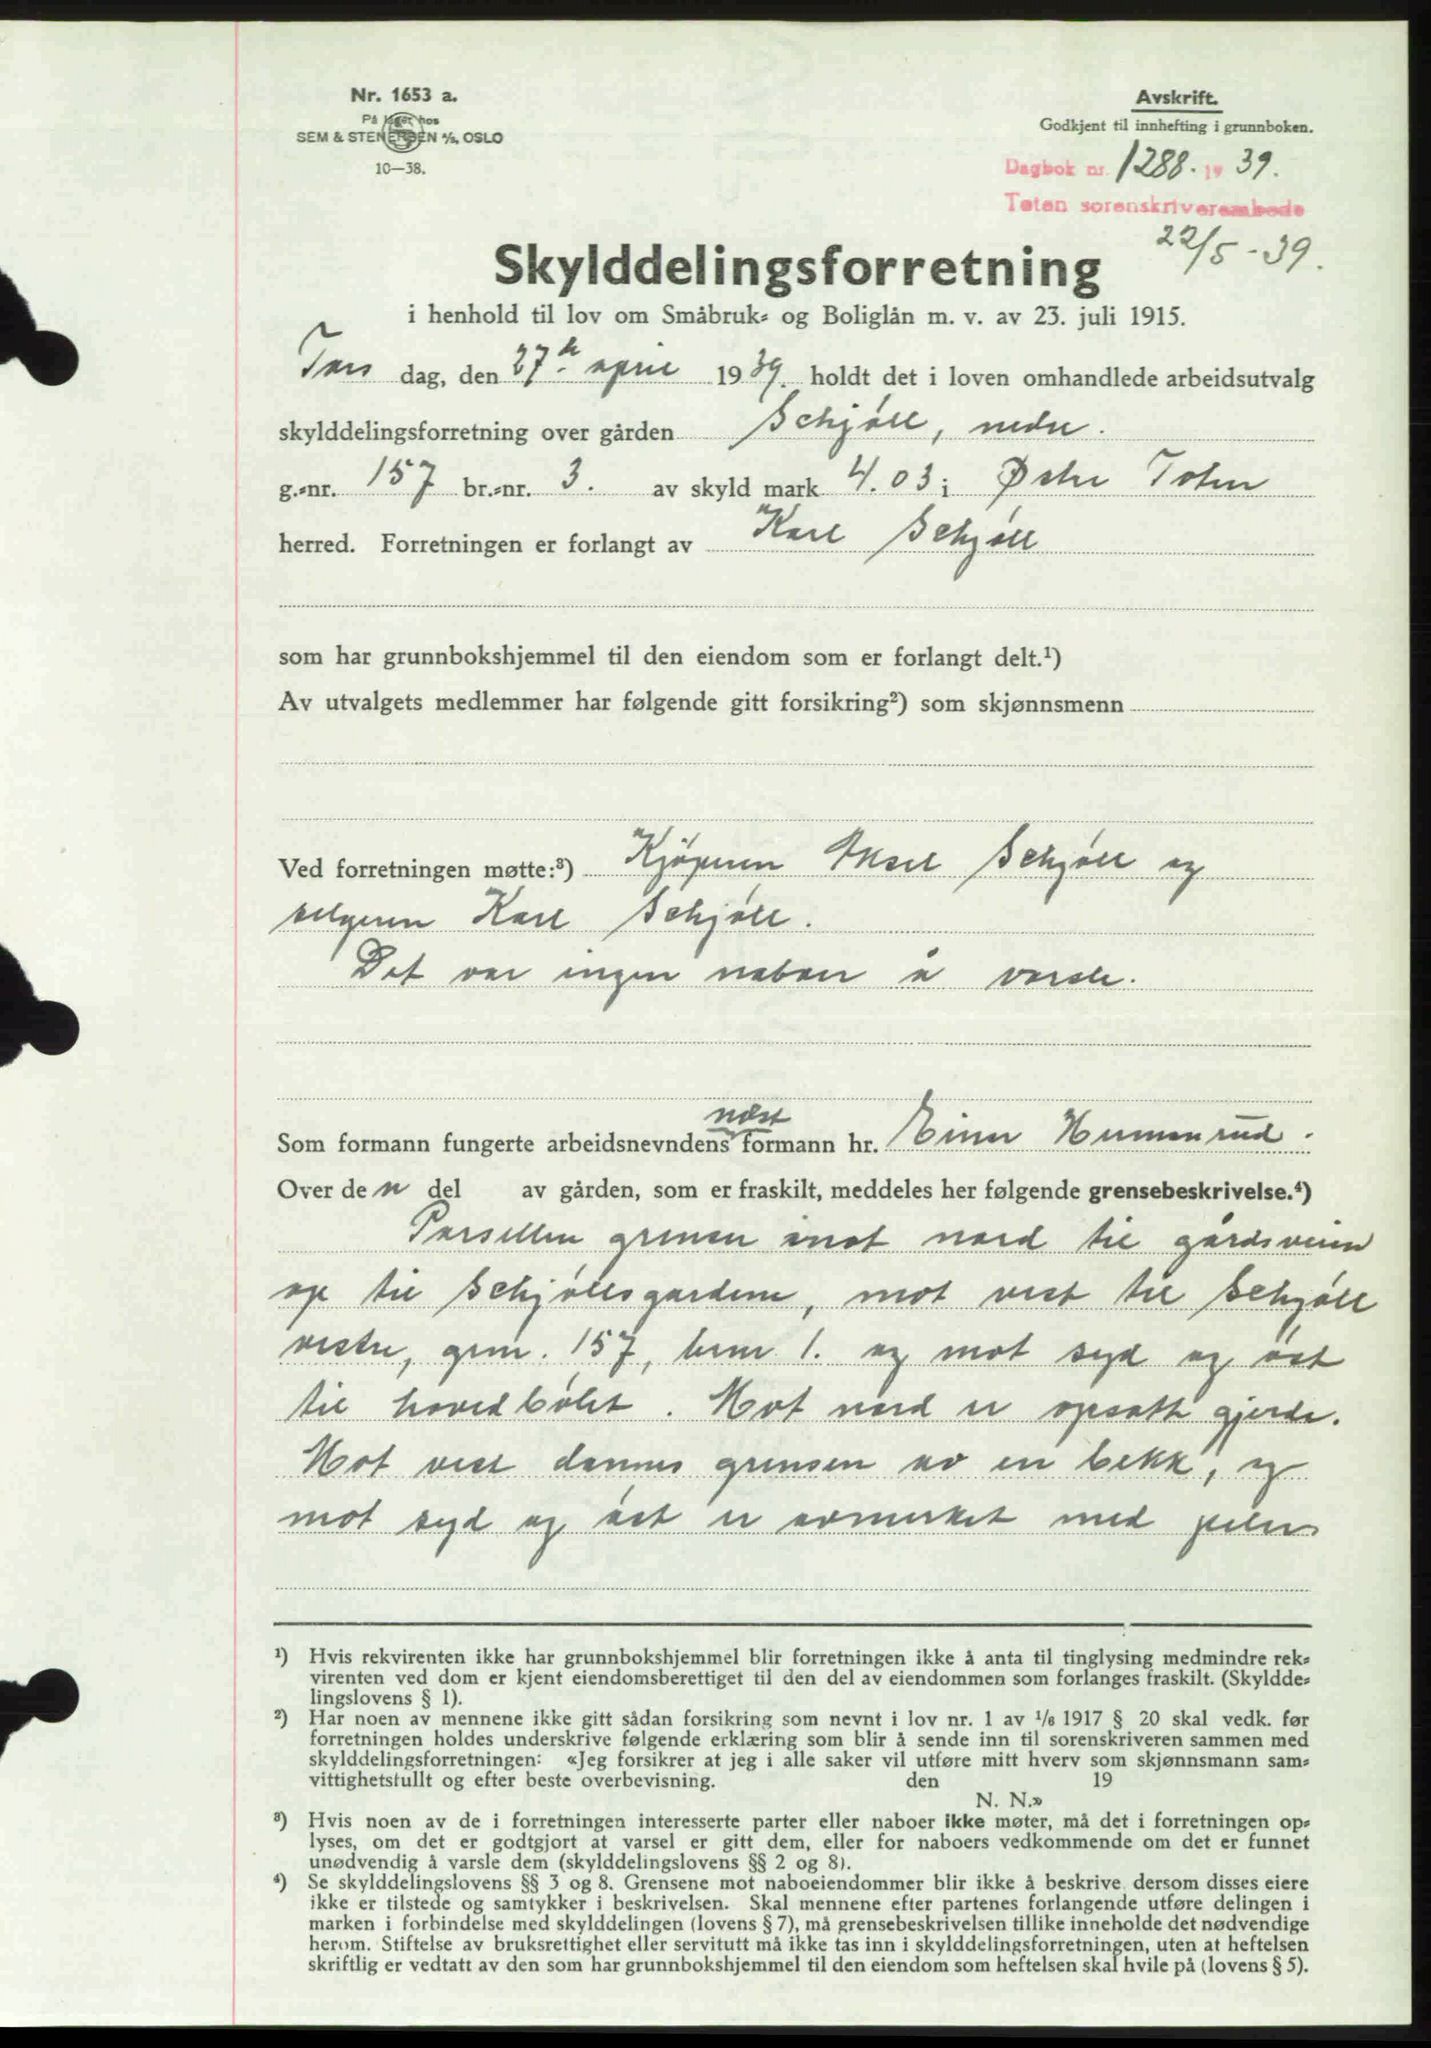 Nr. 1653 a.
På lager hos
SEM & STENERSEN A/S, OSLO
10—38.
Avskrift.
Godkjent til innhefting i grunnboken.
Dagbok nr. 1288. 19 39.
Toten sorenskriverembede
22/5 - 39.
Skylddelingsforretning
i henhold til lov om Småbruk- og Boliglån m. v. av 23. juli 1915.
Tors dag, den 27de april 1939. holdt det i loven omhandlede arbeidsutvalg
skylddelingsforretning over gården Schjøll, nedre.
g.-nr. 157 br.-nr. 3. av skyld mark 4.03 i Østre Toten
herred. Forretningen er forlangt av Karl Schjøll
som har grunnbokshjemmel til den eiendom som er forlangt delt.¹)
Av utvalgets medlemmer har følgende gitt forsikring²) som skjønnsmenn
Ved forretningen møtte:³) Kjöperen Aksel Schjøll og
selgeren Karl Schjøll.
Det var ingen naboer å varsle.
næst
Som formann fungerte arbeidsnevndens formann hr. Einar Hermanrud.
Over den del av gården, som er fraskilt, meddeles her følgende grensebeskrivelse.⁴)
Parsellen grenser imot nord til gårdsveien
op til Schjøllsgardene, mot vest til Schjøll
vestre, grnr. 157, brnr 1. og mot syd og öst
til hovedbölet. Mot nord er opsatt gjerde.
Mot vest dannes grensen av en bekk, og
mot syd og öst er avmerket med peler
¹) Hvis rekvirenten ikke har grunnbokshjemmel blir forretningen ikke å anta til tinglysing medmindre rek-
virenten ved dom er kjent eiendomsberettiget til den del av eiendommen som forlanges fraskilt. (Skyldde-
lingslovens § 1).
²) Har noen av mennene ikke gitt sådan forsikring som nevnt i lov nr. 1 av 1/6 1917 § 20 skal vedk. før
forretningen holdes underskrive følgende erklæring som blir å sende inn til sorenskriveren sammen med
skylddelingsforretningen: «Jeg forsikrer at jeg i alle saker vil utføre mitt hverv som skjønnsmann sam-
vittighetsfullt og efter beste overbevisning. den 19
N. N.»
³) Hvis noen av de i forretningen interesserte parter eller naboer ikke møter, må det i forretningen op-
lyses, om det er godtgjort at varsel er gitt dem, eller for naboers vedkommende om det er funnet
unødvendig å varsle dem (skylddelingslovens §§ 2 og 8).
⁴) Se skylddelingslovens §§ 3 og 8. Grensene mot naboeiendommer blir ikke å beskrive dersom disses eiere
ikke er tilstede og samtykker i beskrivelsen. Skal mennene efter partenes forlangende utføre delingen i
marken i forbindelse med skylddelingen (lovens § 7), må grensebeskrivelsen tillike inneholde det nødvendige
herom. Stiftelse av bruksrettighet eller servitutt må ikke tas inn i skylddelingsforretningen, uten at heftelsen
skriftlig er vedtatt av den som har grunnbokshjemmel til den eiendom som heftelsen skal hvile på (lovens § 5).